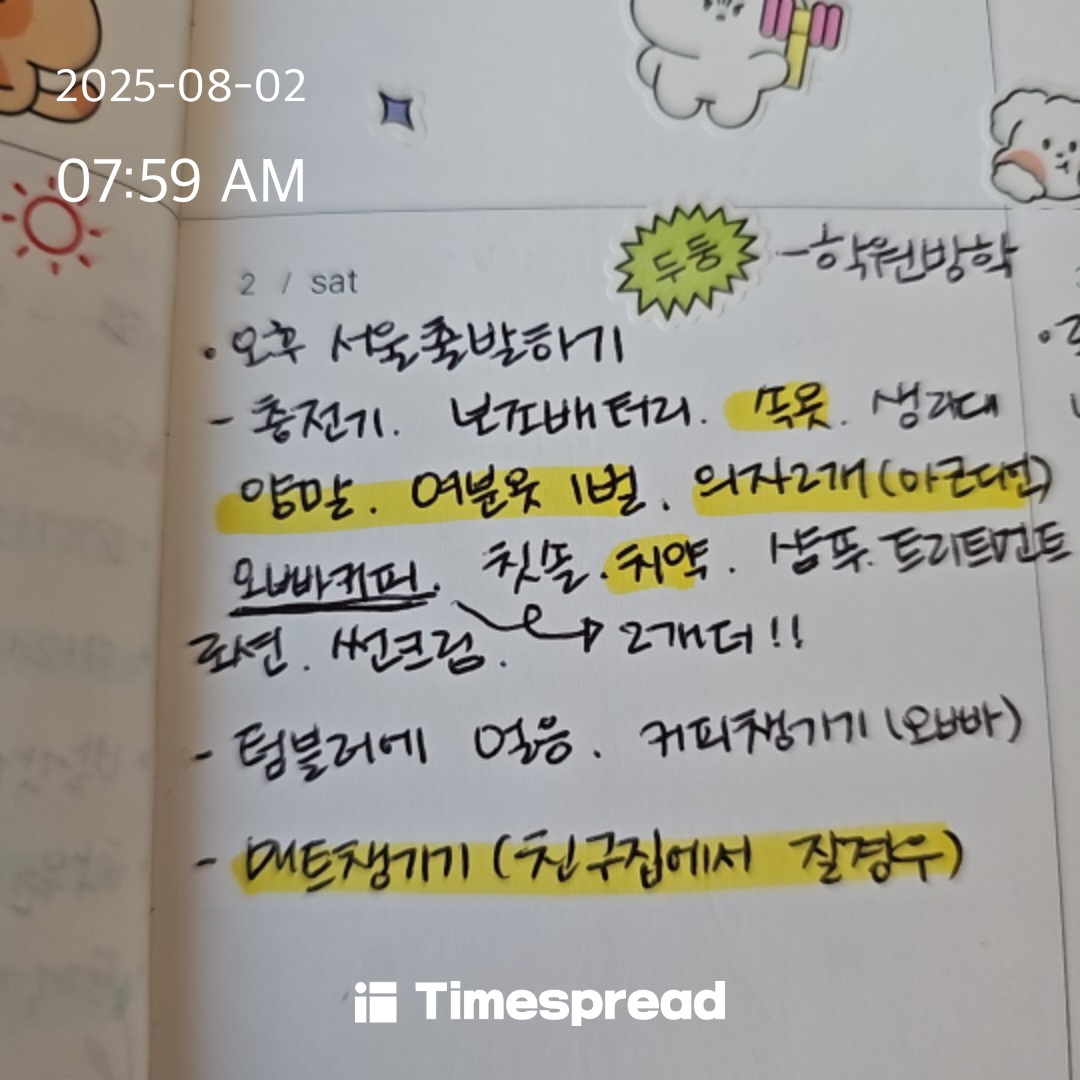 2025-08-02
07:59 AM
2 / sat
두둥 -학원방학
· 오후 서울출발하기
- 충전기. 보조배터리. 속옷. 생리대
양말. 여분옷 1벌. 의자2개(아르디언)
오빠커피. 칫솔. 치약. 샴푸. 트리트먼트
로션. 썬크림. → 2개더!!
- 텀블러에 얼음. 커피챙기기(오빠)
- 매트챙기기 (친구집에서 잘경우)
Timespread